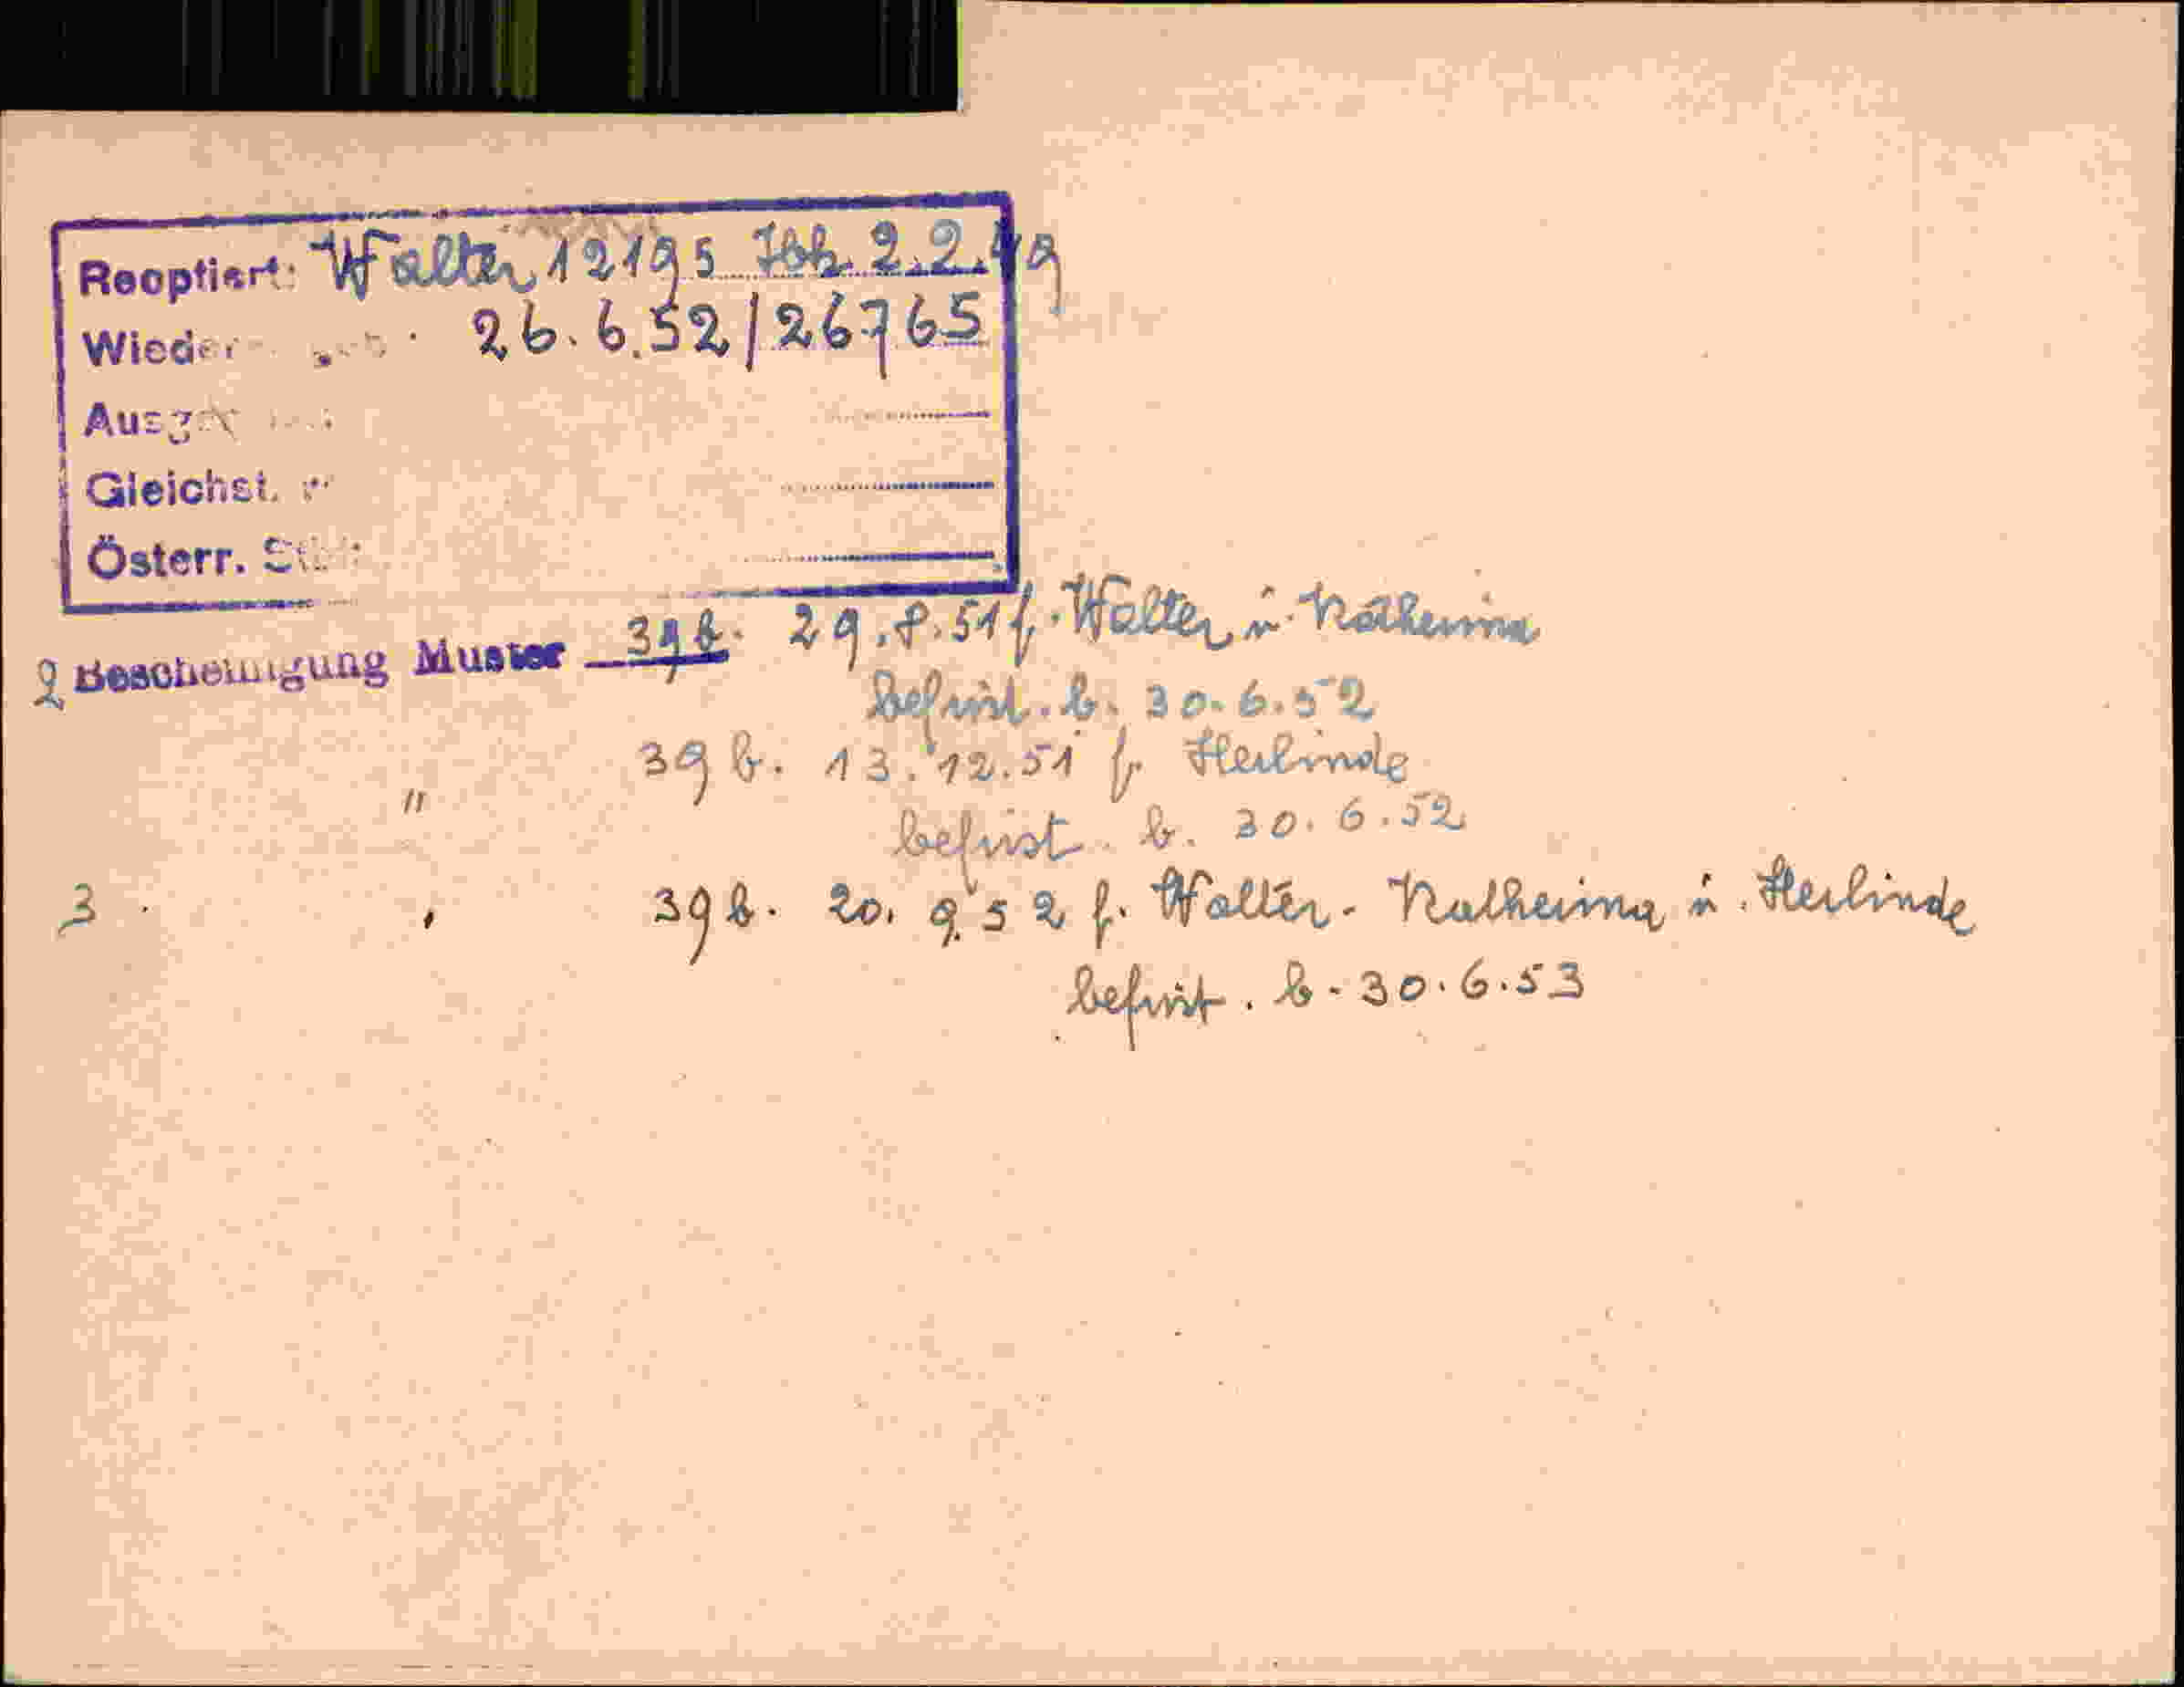 Reoptiert: Walter 12195 Ibk. 2.2.49
Wieder 26.6.52/26765
Gleichst.
Österr.
2 Bescheinigung Muster 39b. 29.8.51 f. Walter u. Katherina
befrist. b. 30.6.52
" 39b. 13.12.51 f. Herlinde
befrist. b. 30.6.52
3 " 39b. 20.9.52 f. Walter - Katherina u. Herlinde
befrist. b. 30.6.53